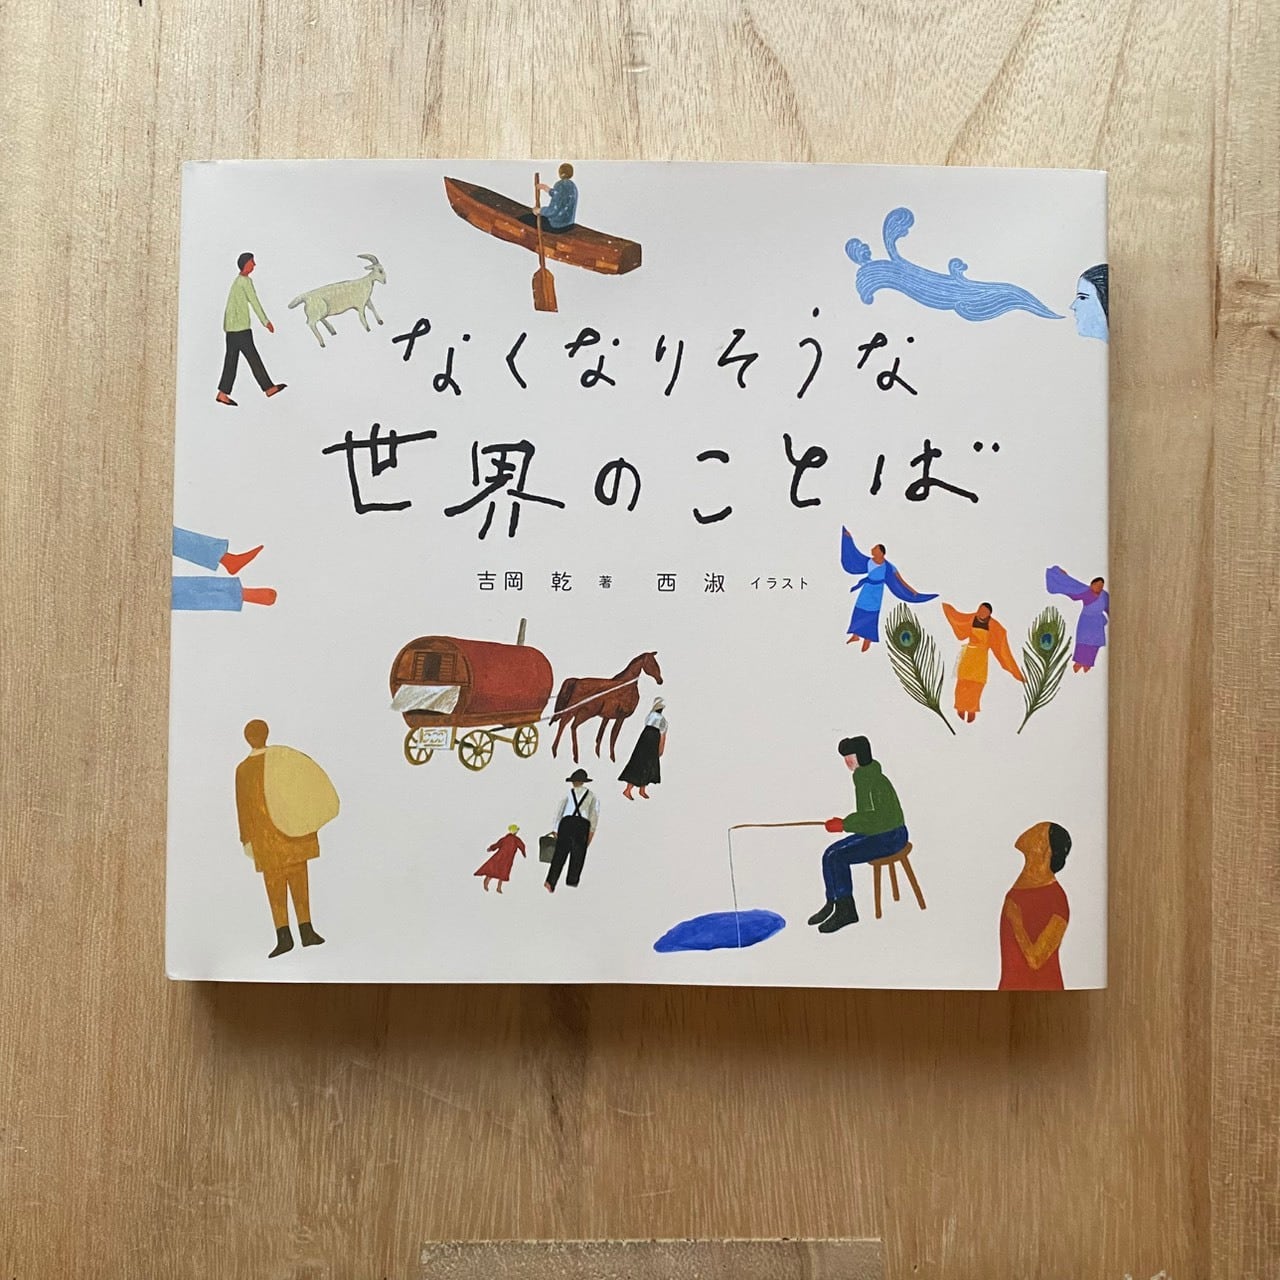 なくなりそうな
世界のことば
吉岡 乾 著 西 淑 イラスト